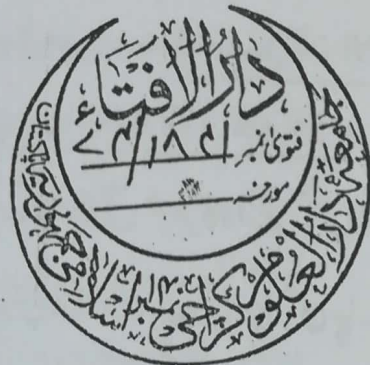 دارُالافتاء
فتویٰ نمبر ۷۴/۱۸۴۱
مورخہ
جامعہ دارالعلوم کراچی نمبر ۱۴ اسلامی جمہوریہ پاکستان